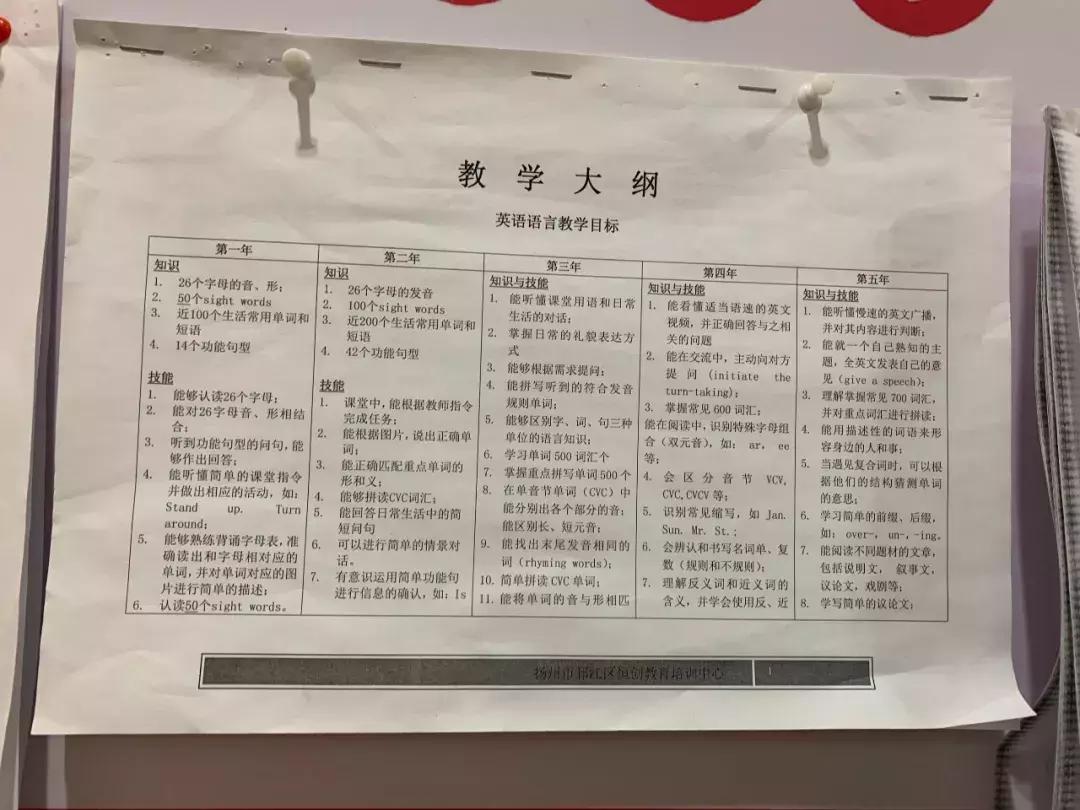 教 学 大 纲
英语语言教学目标
第一年
知识
1. 26个字母的音、形;
2. 50个sight words
3. 近100个生活常用单词和
短语
4. 14个功能句型
技能
1. 能够认读26个字母;
2. 能对26字母音、形相结
合;
3. 听到功能句型的问句,能
够作出回答;
4. 能听懂简单的课堂指令
并做出相应的活动,如:
Stand up. Turn
around;
5. 能够熟练背诵字母表,准
确读出和字母相对应的
单词,并对单词对应的图
片进行简单的描述;
6. 认读50个sight words。
第二年
知识
1. 26个字母的发音
2. 100个sight words
3. 近200个生活常用单词和
短语
4. 42个功能句型
技能
1. 课堂中,能根据教师指令
完成任务;
2. 能根据图片,说出正确单
词;
3. 能正确匹配重点单词的
形和义;
4. 能够拼读CVC词汇;
5. 能回答日常生活中的简
短问句
6. 可以进行简单的情景对
话。
7. 有意识运用简单功能句
进行信息的确认,如:Is
第三年
知识与技能
1. 能听懂课堂用语和日常
生活的对话;
2. 掌握日常的礼貌表达方
式
3. 能够根据需求提问;
4. 能拼写听到的符合发音
规则单词;
5. 能够区别字、词、句三种
单位的语言知识;
6. 学习单词500词汇个
7. 掌握重点拼写单词500个
8. 在单音节单词(CVC)中
能分别出各个部分的音;
能区别长、短元音;
9. 能找出末尾发音相同的
词(rhyming words);
10. 简单拼读CVC单词;
11. 能将单词的音与形相匹
第四年
知识与技能
1. 能看懂适当语速的英文
视频,并正确回答与之相
关的问题
2. 能在交流中,主动向对方
提问(initiate the
turn-taking);
3. 掌握常见600词汇;
能在阅读中,识别特殊字母组
合(双元音),如: ar, ee
等;
4. 会区分音节VCV,
CVC,CVCV等;
5. 识别常见缩写,如 Jan.
Sun. Mr. St.;
6. 会辨认和书写名词单、复
数(规则和不规则);
7. 理解反义词和近义词的
含义,并学会使用反、近
第五年
知识与技能
1. 能听懂慢速的英文广播,
并对其内容进行判断;
2. 能就一个自己熟知的主
题,全英文发表自己的意
见(give a speech);
3. 理解掌握常见700词汇,
并对重点词汇进行拼读;
4. 能用描述性的词语来形
容身边的人和事;
5. 当遇见复合词时,可以根
据他们的结构猜测单词
的意思;
6. 学习简单的前缀、后缀,
如: over-, un-, -ing。
7. 能阅读不同题材的文章,
包括说明文, 叙事文,
议论文,戏剧等;
8. 学写简单的议论文;
扬州市邗江区恒创教育培训中心
1